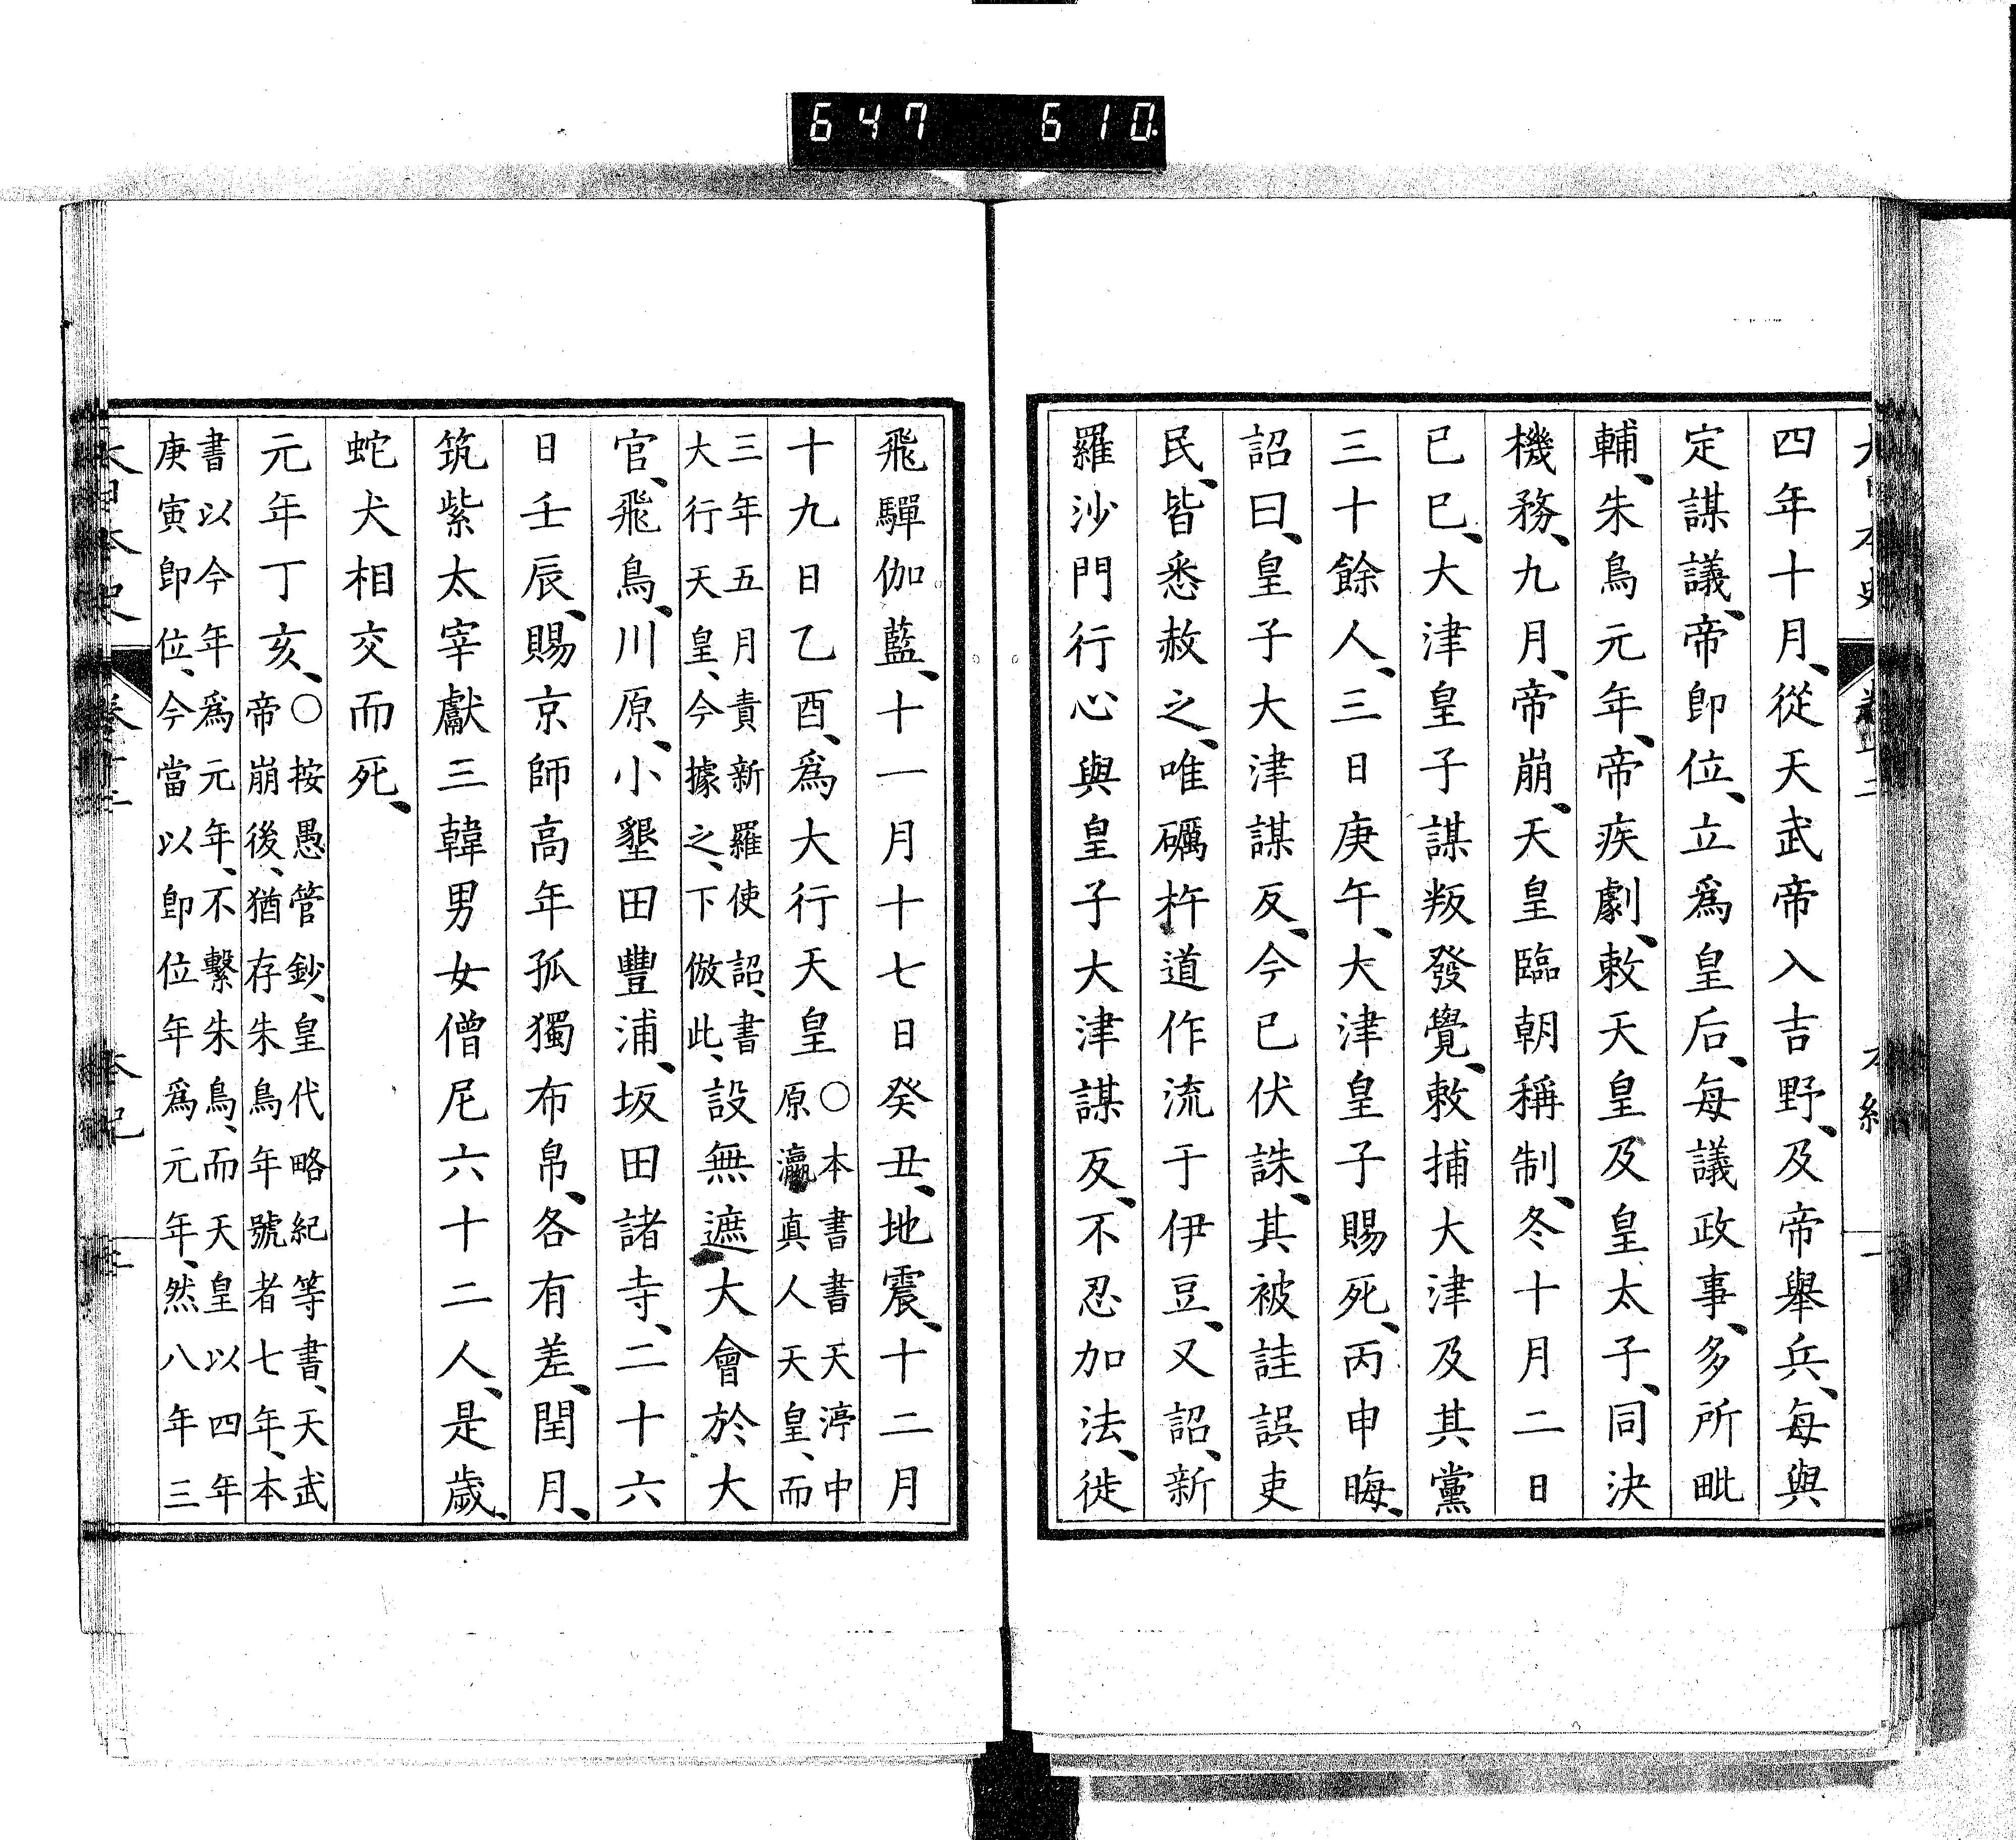 647 610
四年十月、從天武帝入吉野、及帝舉兵、每與
定謀議、帝卽位、立爲皇后、每議政事、多所毗
輔、朱鳥元年、帝疾劇、敕天皇及皇太子、同決
機務、九月、帝崩、天皇臨朝稱制、冬十月二日
己巳、大津皇子謀叛發覺、敕捕大津及其黨
三十餘人、三日庚午、大津皇子賜死、丙申晦、
詔曰、皇子大津謀反、今已伏誅、其被詿誤吏
民、皆悉赦之、唯礪杵道作流于伊豆、又詔、新
羅沙門行心與皇子大津謀反、不忍加法、徙
飛驒伽藍、十一月十七日癸丑、地震、十二月
十九日乙酉、爲大行天皇○本書書天渟中原瀛真人天皇、而
三年五月責新羅使詔、書大行天皇、今據之、下倣此、設無遮大會於大
官、飛鳥、川原、小墾田豐浦、坂田諸寺、二十六
日壬辰、賜京師高年孤獨布帛、各有差、閏月、
筑紫太宰獻三韓男女僧尼六十二人、是歲、
蛇犬相交而死、
元年丁亥、○按愚管鈔、皇代略紀等書、天武帝崩後、猶存朱鳥年號者七年、本
書以今年爲元年、不繫朱鳥、而天皇以四年庚寅卽位、今當以卽位年爲元年、然八年三
大日本史 本紀